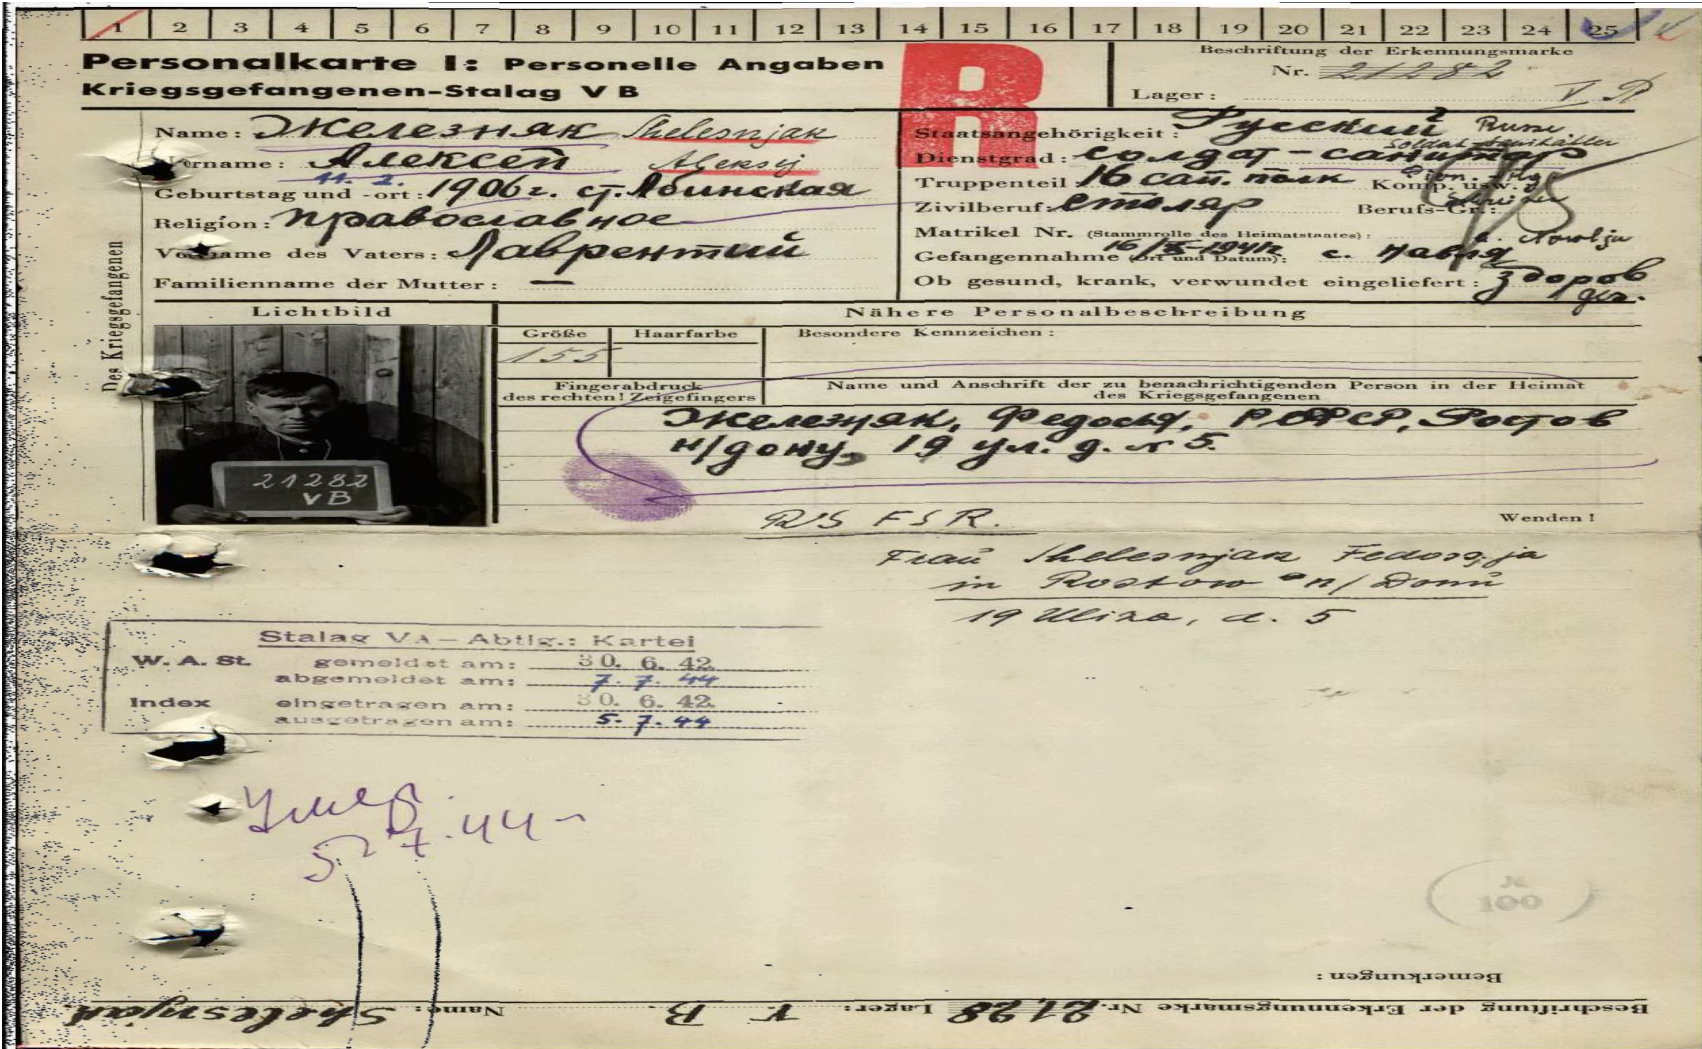 1 2 3 4 5 6 7 8 9 10 11 12 13 14 15 16 17 18 19 20 21 22 23 24 25
Personalkarte I: Personelle Angaben
Kriegsgefangenen-Stalag V B
R
Beschriftung der Erkennungsmarke
Nr. 21282
Lager: V B
Des Kriegsgefangenen
Name: Железняк Shelesnjak
Vorname: Алексей Aleksej
11. 2.
Geburtstag und -ort: 1906 г. ст. Абинская
Religion: православное
Vorname des Vaters: Лаврентий
Familienname der Mutter: —
Staatsangehörigkeit: Русский Russe
Dienstgrad: солдат-санитар
Truppenteil: 16 сап. полк Komp. usw.:
Zivilberuf: столяр Berufs-Gr.:
Matrikel Nr. (Stammrolle des Heimatstaates):
Gefangennahme (Ort und Datum): 16/X-1941г с. Навля
Ob gesund, krank, verwundet eingeliefert: Здоров
ges.
Lichtbild
Nähere Personalbeschreibung
Größe Haarfarbe Besondere Kennzeichen:
155
21282
VB
Fingerabdruck
des rechten! Zeigefingers
Name und Anschrift der zu benachrichtigenden Person in der Heimat
des Kriegsgefangenen
Железняк, Федосья, РСФСР, Ростов
н/дону, 19 ул. д. № 5.
Wenden!
RSFSR.
Frau Shelesnjak Fedossja
in Rostow n/Donu
19 Uliza, d. 5
Stalag VA – Abtlg.: Kartei
W. A. St. gemeldet am: 30. 6. 42
abgemeldet am: 7. 7. 44
Index eingetragen am: 30. 6. 42
ausgetragen am: 5. 7. 44
Умер
5 7.44
100
Bemerkungen:
Beschriftung der Erkennungsmarke Nr. 21,28 Lager: V B. Name: Shelesnjak